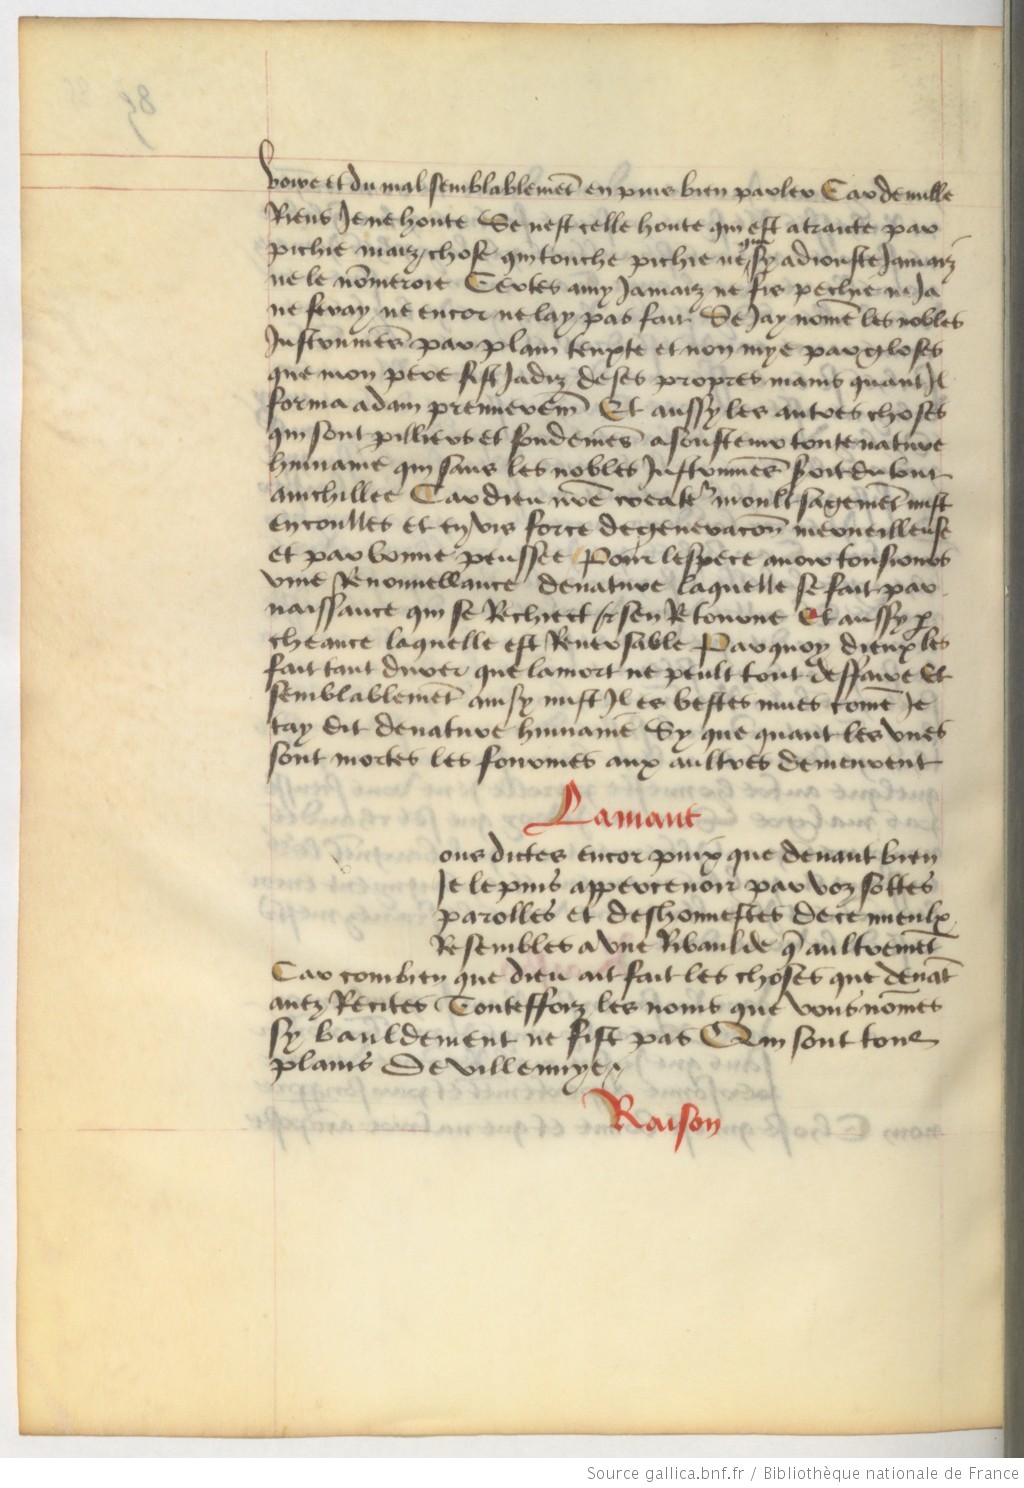 voire et du mal semblablemēt en puis bien parler Car de nulle
Riens Je ne honte Se nest celle honte qui est atraicte par
pichie maiz chose qui touche pichie ne sy adiouste Jamaiz
ne le nōmeroie Certes amy Jamaiz ne fis pechie ni Ja
ne feray ne encor ne lay pas fait Se Jay nomē les nobles
Instrumēs par plain teuxte et non mye par gloses
que mon pere fist Jadiz de ses propres mains quant Il
forma adam premieremēt Et aussy les autres choses
qui sont pilliers et fondemēs a soustenir toute nature
humaine qui sans les nobles Instrumēs seroit du tout
anichillee Car dieu nrē creatr moult sagemēt mist
en coulles et en vis force de generacōn merueilleuse
et par bonne peussee Pour lespece auoir tousiours
vine Renouuellance de nature laquelle se fait par
naissance qui se Rechiet & sen Retourne Et aussy p
cheance laquelle est Reuersable Par quoy dieux les
fait tant durer que la mort ne peult tout deffaire Et
semblablemēt ainsy mist Il es bestes mues comē Je
tay dit de nature humaine Sy que quant les vnes
sont mortes les fourmes aux aultres demeurent
Lamant
ous dictes encor puix que deuant bien
Je le puis appercenoir par voz sottes
parolles et deshonnestes de ce mieulx
Resembles a vne Ribaulde q̄ aultremēt
Car combien que dieu ait fait les choses que deuāt
auez Recites Touteffoiz les noms que vous nōmes
sy bauldement ne fist pas Qui sont tous
plains de villennye
Raison
Source gallica.bnf.fr / Bibliothèque nationale de France